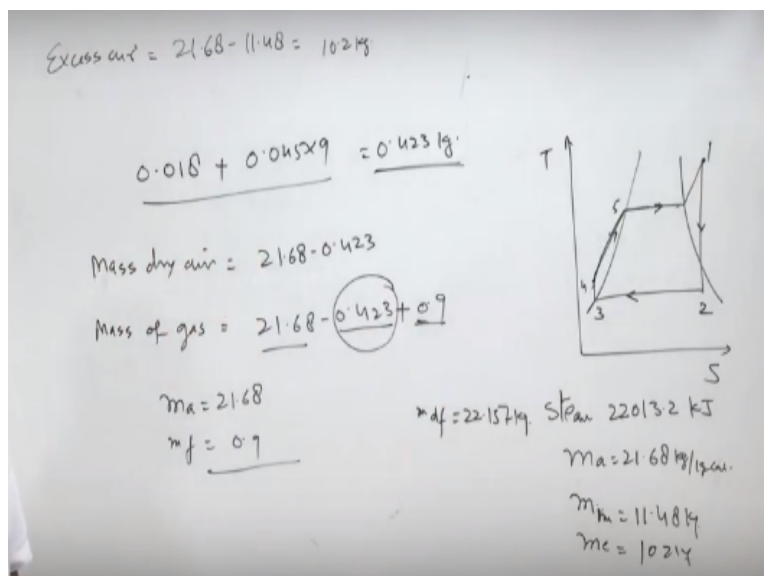 Excess air = 21.68 - 11.48 = 10.2 kg
0.018 + 0.045x9 = 0.423 kg.
Mass dry air = 21.68 - 0.423
Mass of gas = 21.68 - 0.423 + 0.9
ma = 21.68
mf = 0.9
T
1
5
4
3
2
S
mdf = 22.157 kg. Steam 22013.2 kJ
ma = 21.68 kg/kg
= 11.48 kg
me = 10.2